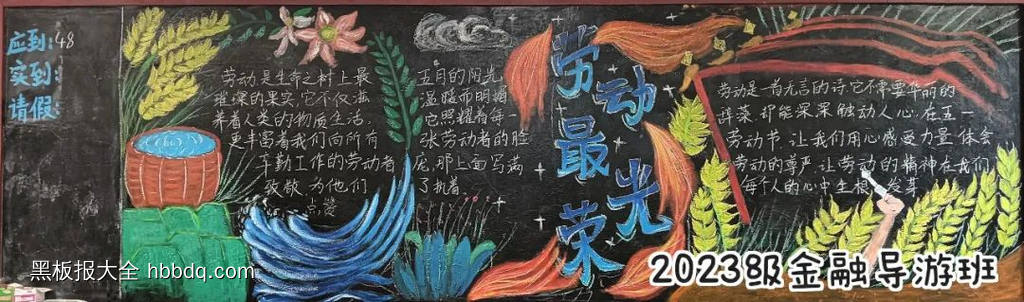 应到:48
实到:
请假:
劳动是生命之树上最
璀深的果实,它不仅滋
养着人类的物质生活,
更丰富着我们向所有
辛勤工作的劳动者
致敬为他们
点赞
五月的阳光
温暖而明媚
它照耀着每一
张劳动者的脸
庞,那上面写满
了执着
劳动
最
光
荣
劳动是一首无言的诗它不常要华丽的
辞菜,却能深深触动人心在五一
劳动节,让我们用心感受力量体会
劳动的尊严让劳动的精神在我们
每个人的心中生根发芽
黑板报大全 hbbdq.com
2023级金融导游班